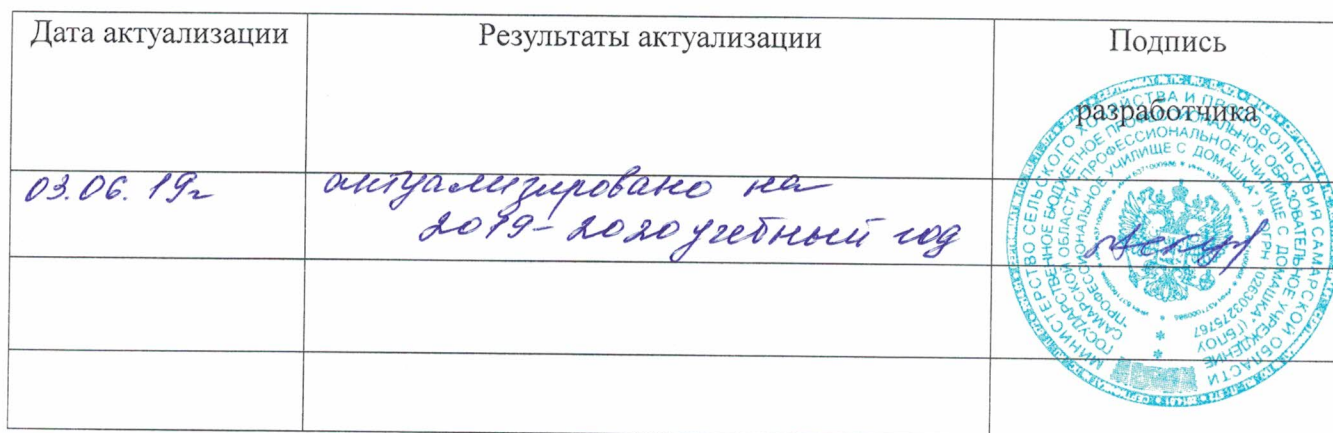 Дата актуализации
Результаты актуализации
Подпись
разработчика
03.06.19г
актуализировано на
2019-2020 учебный год
МИНИСТЕРСТВО СЕЛЬСКОГО ХОЗЯЙСТВА И ПРОДОВОЛЬСТВИЯ САМАРСКОЙ ОБЛАСТИ
ГОСУДАРСТВЕННОЕ БЮДЖЕТНОЕ ПРОФЕССИОНАЛЬНОЕ ОБРАЗОВАТЕЛЬНОЕ УЧРЕЖДЕНИЕ
САМАРСКОЙ ОБЛАСТИ ПРОФЕССИОНАЛЬНОЕ УЧИЛИЩЕ С ДОМАШКА" (ГБПОУ
"ПРОФЕССИОНАЛЬНОЕ УЧИЛИЩЕ С ДОМАШКА") ОГРН 1026303275767